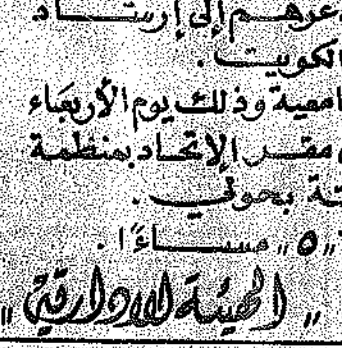 إلى إرتياد
الكويت.
وذلك يوم الأربعاء
مقر الإتحاد بمنطقة
بحولي.
"٥" مساءً.
"الهيئة الادارية"